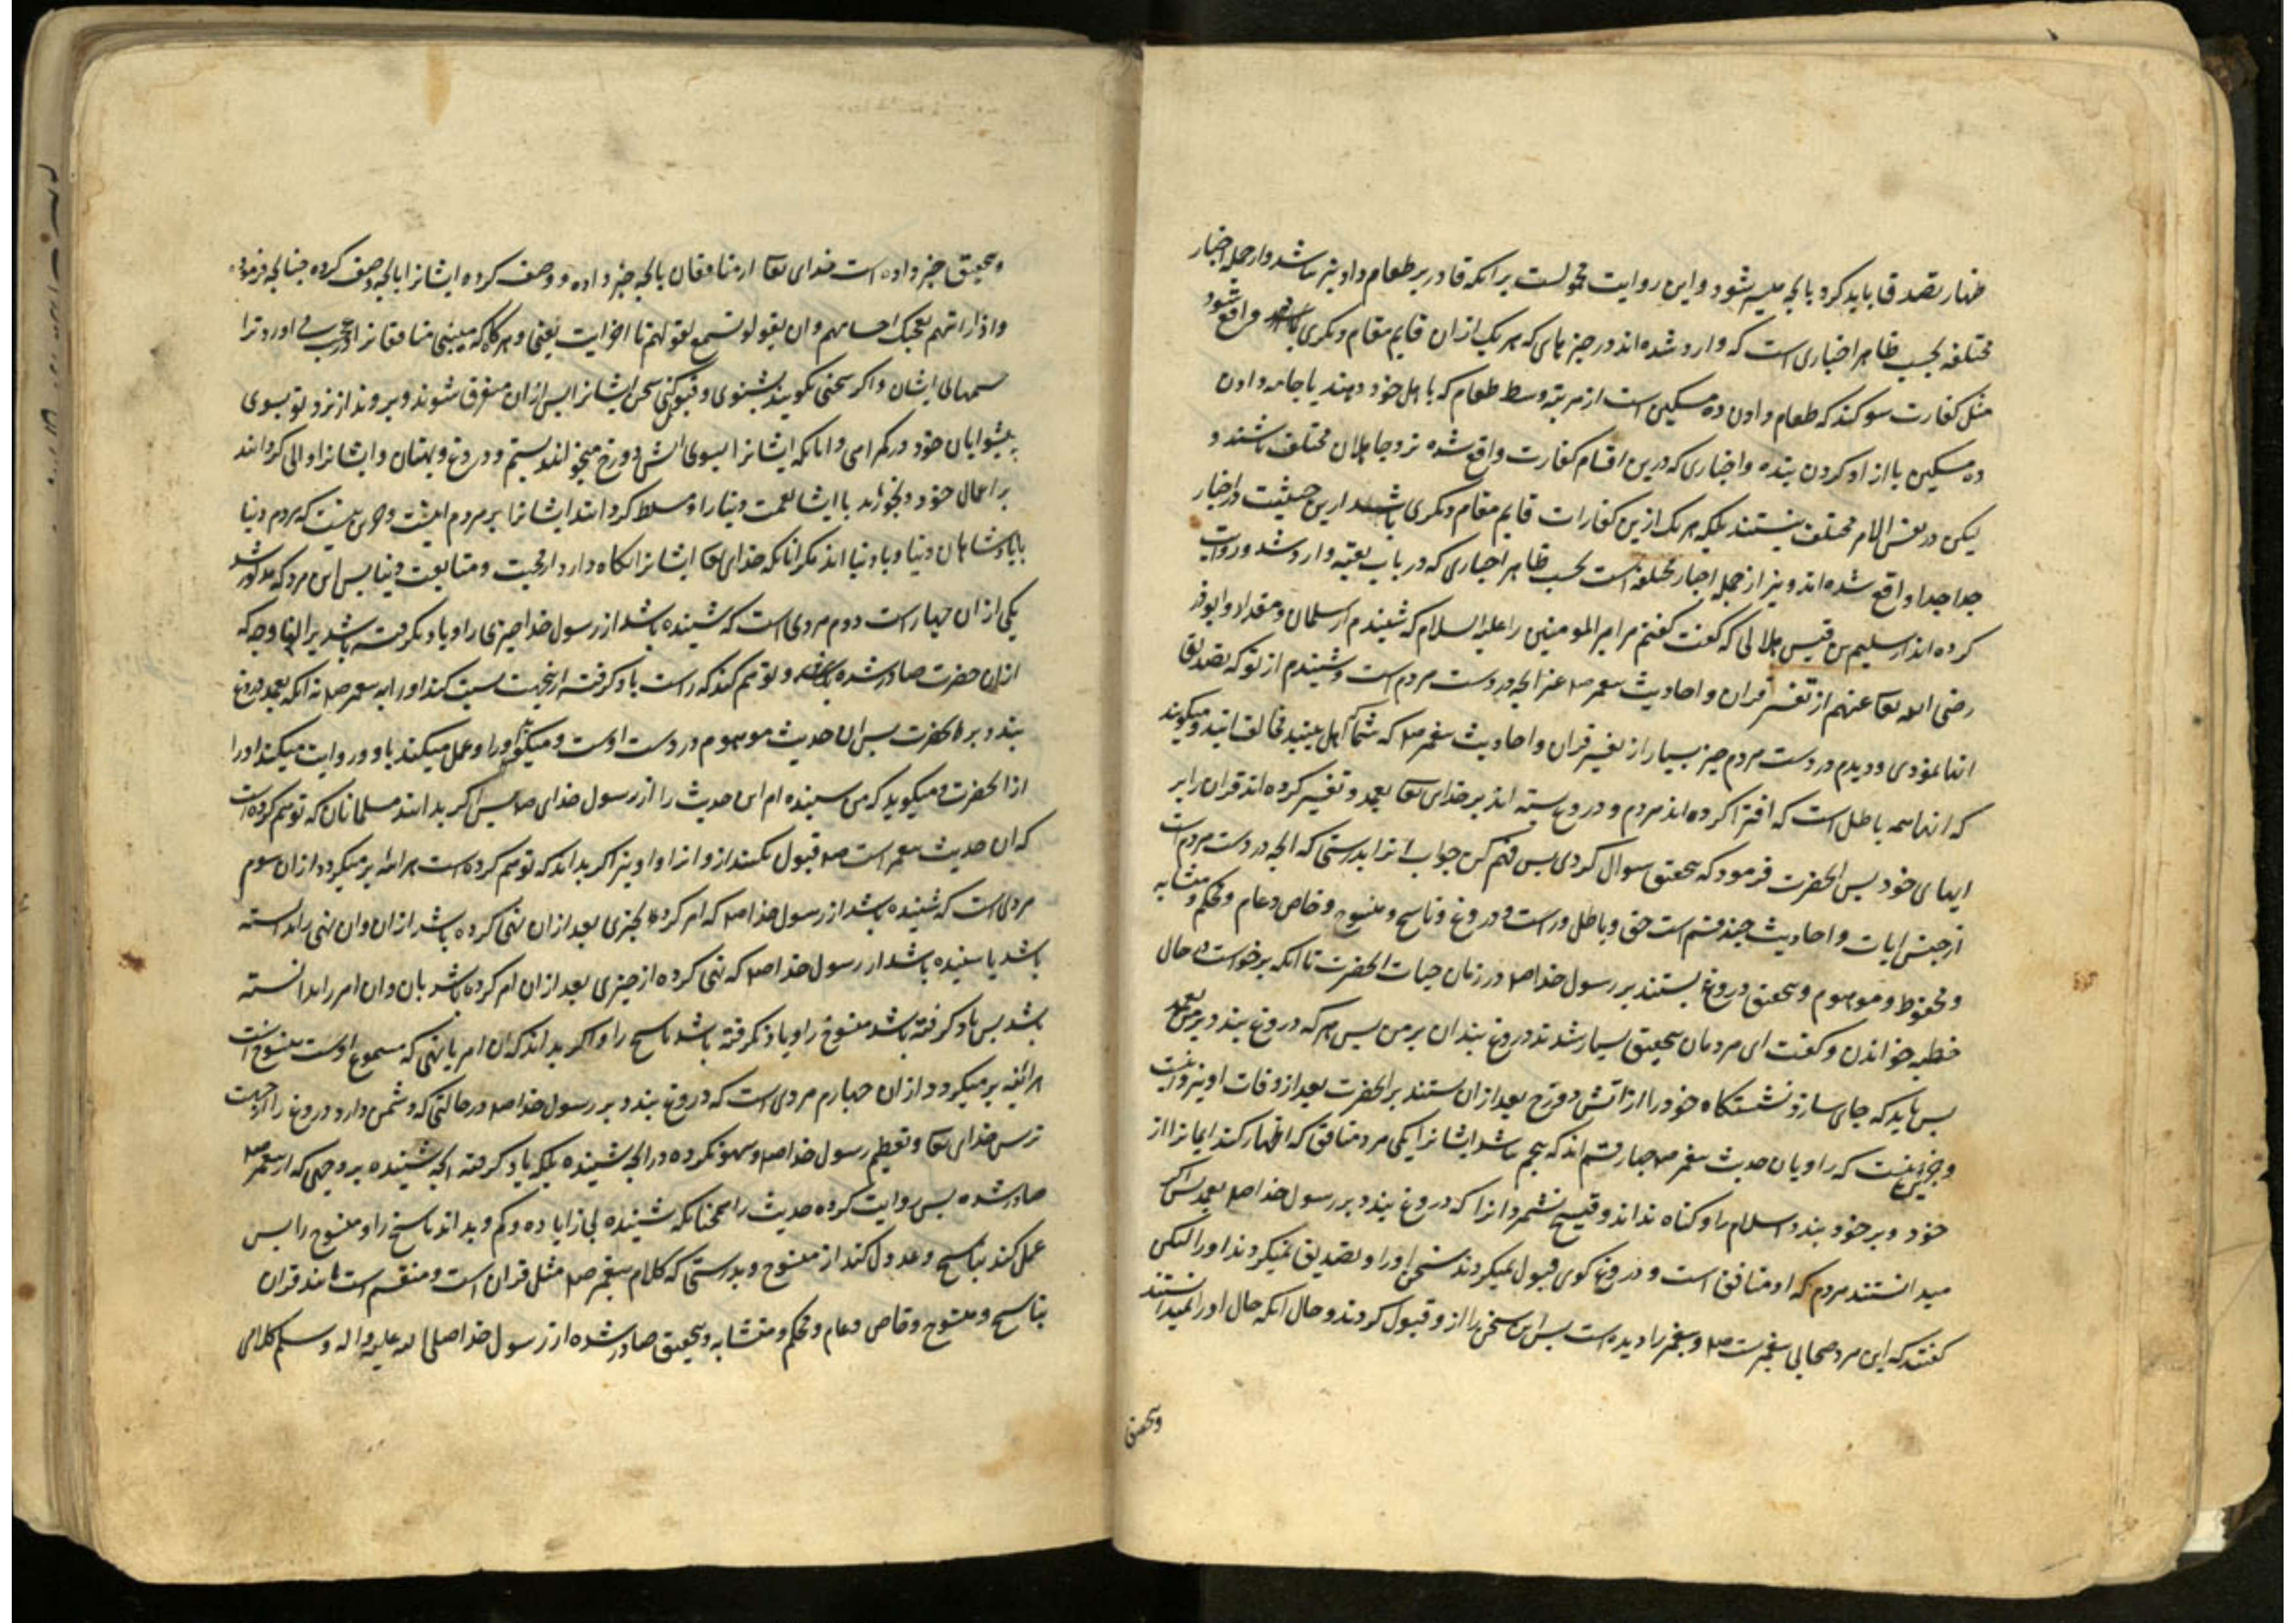 ظهار تصدق باید کرد بانچه میسر شود و این روایت محمولست برانکه قادر بر طعام دادن نباشد و از جمله اخبار
مختلفه بحسب ظاهر اخباری است که وارد شده اند در چیزهای که هر یک از ان قایم مقام دیکری واقع شود
مثل کفارت سوکند که طعام دادن ده مسکین است از مرتبه وسط طعام که باهل خود دهند یا جامه دادن
ده مسکین یا ازاد کردن بنده و اخباری که درین اقسام کفارت واقع شده نزد جاهلان مختلف باشند و
لیکن در نفس الامر مختلف نیستند بلکه هر یک ازین کفارات قایم مقام دیکری باشد ازین حیثیت در اخبار
جدا جدا واقع شده اند و نیز از جمله اخبار مختلفه است بحسب ظاهر اخباری که در باب تقیه وارد شد و روایت
کرده اند از سلیم بن قیس هلالی که کفت کفتم مر امیر المومنین را علیه السلام که شنیدم از سلمان و مقداد و ابوذر
رضی الله تعا عنهم از تفسیر قران و احادیث پیغمبر صم غیر انچه در دست مردم است و شنیدم از تو که تصدیق
انها نمودی و دیدم در دست مردم چیز بسیار از تفسیر قران و احادیث پیغمبر صم که شما اهل بیتید مخالف انید و میکویند
که انها همه باطل است که افترا کرده اند مردم و دروغ بسته اند بر خدای تعا بعمد و تفسیر کرده اند قران را بر
ایهای خود پس انحضرت فرمود که بتحقیق سوال کردی پس فهم کن جواب انرا بدرستی که انچه در دست مردم است
از جنس ایات و احادیث چند قسم است حق و باطل و راست و دروغ و ناسخ و منسوخ و خاص و عام و محکم و متشابه
و محفوظ و موهوم و بتحقیق دروغ بستند بر رسول خدا صم در زمان حیات انحضرت تا انکه برخواست در حال
خطبه خواندن و کفت ای مردمان بتحقیق بسیار شدند دروغ بندان بر من پس هر که دروغ بندد بر من بعمد
پس باید که جای سازد نشستکاه خود را از اتش دوزخ بعد از ان بستند بر انحضرت بعد از وفات او نیز
و جز این نیست که راویان حدیث پیغمبر صم چهار قسم اند که پنجم نباشد ایشانرا یکی مرد منافق که اظهار کند ایمانرا از
خود و بر خود بندد اسلام را و کناه نداند و قبیح نشمرد انرا که دروغ بندد بر رسول خدا صم بعمد پس اکر
میدانستند مردم که او منافق است و دروغ کوی قبول نمیکردند سخن او را و تصدیق نمیکردند او را لیکن
کفتند که این مرد صحابی پیغمبرست صم و پیغمبر را دیده است پس این سخن را از و قبول کردند و حال انکه حال او را نمیدانستند
و بتحقیق
و بتحقیق خبر داده است خدای تعا از منافقان بانچه خبر داده و وصف کرده ایشانرا بانچه وصف کرده چنانچه فرموده
و اذا رایتهم تعجبک اجسامهم و ان یقولوا تسمع لقولهم تا اخر ایت یعنی و هرکاه که میبینی منافقانرا در عجب می اورد ترا
جسمهای ایشان و اکر سخنی بکویند بشنوی و قبول کنی سخن ایشانرا پس از ان متفرق شوند و بروند از نزد تو بسوی
پیشوایان خود در کمراهی و انانکه ایشانرا بسوی اتش دوزخ میخوانند بستم و دروغ و بهتان و ایشانرا والی کردانند
بر اعمال خود و بخورند با ایشان نعمت دنیا را و مسلط کردانند ایشانرا بر مردم و جز این نیست که مردم دنیا
با پادشاهان دنیا و با دنیا اند مکر انانکه خدای تعا ایشانرا نکاه دارد از محبت و متابعت دنیا پس این مرد که مذکور شد
یکی از ان چهار است دوم مردی است که شنیده باشد از رسول خدا چیزی را و یاد نکرفته باشد بر انوجه که
از ان حضرت صادر شده باشد و توهم کند که راست یاد کرفته ازینجهت نسبت کند او را به پیغمبر صم نه انکه بعمد دروغ
بندد بر انحضرت پس ان حدیث موهوم در دست اوست و میکوید او را و عمل میکند باو و روایت میکند او را
از انحضرت و میکوید که من شنیده ام این حدیث را از رسول خدای صم پس اکر بدانند مسلمانان که توهم کرده است
که ان حدیث پیغمبر است صم قبول نکنند از و انرا و او نیز اکر بداند که توهم کرده است هر اینه بر میکردد از ان سوم
مردی است که شنیده باشد از رسول خدا صم که امر کرده بچیزی بعد از ان نهی کرده باشد از ان و ان نهی را ندانسته
باشد یا شنیده باشد از رسول خدا صم که نهی کرده از چیزی بعد از ان امر کرده باشد بان و ان امر را ندانسته
باشد پس یاد کرفته باشد منسوخ را و یاد نکرفته باشد ناسخ را و اکر بداند که ان امر یا نهی که مسموع اوست منسوخ است
هراینه بر میکردد از ان چهارم مردی است که دروغ نبندد بر رسول خدا صم در حالتی که دشمن دارد دروغ را از جهت
ترس خدای تعا و تعظیم رسول خدا صم و سهو نکرده در انچه شنیده بلکه یاد کرفته انچه شنیده بر وجهی که از پیغمبر صم
صادر شده پس روایت کرده حدیث را همچنانکه شنیده بی زیاده و کم و بداند ناسخ را و منسوخ را پس
عمل کند بناسخ و عدول کند از منسوخ و بدرستی که کلام پیغمبر صم مثل قران است و منقسم است مانند قران
بناسخ و منسوخ و خاص و عام و محکم و متشابه و بتحقیق صادر شده از رسول خدا صلی الله علیه و اله و سلم کلامی